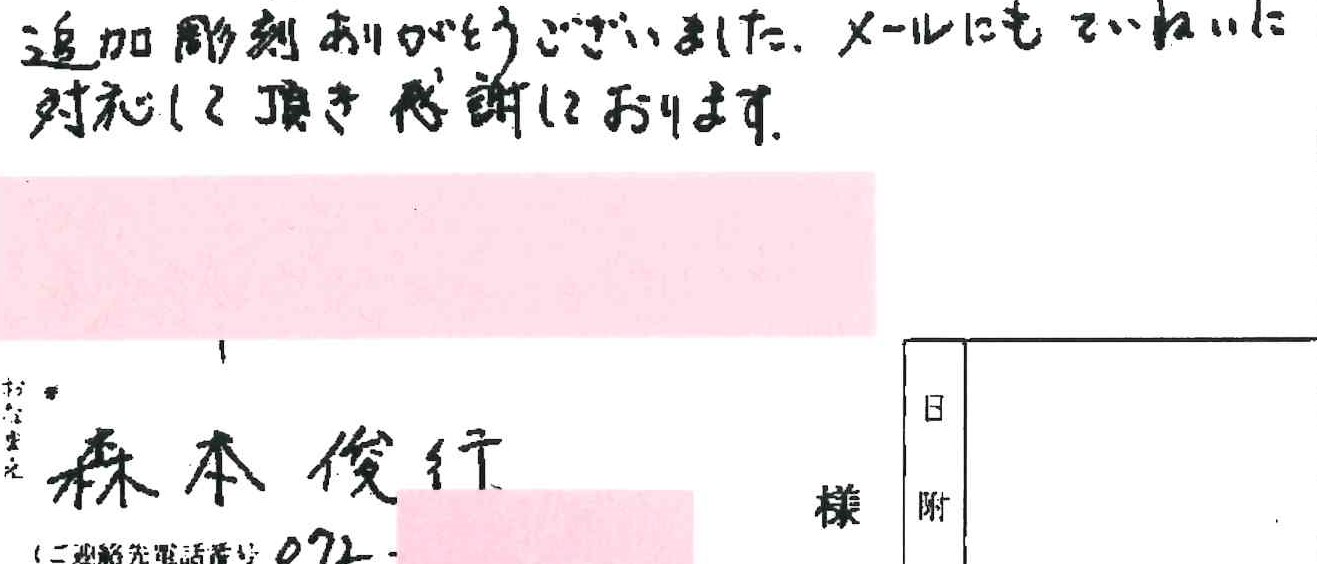 追加彫刻ありがとうございました。メールにもていねいに
対応して頂き感謝しております。
森本俊行
様
(ご連絡先電話番号 072-
日附